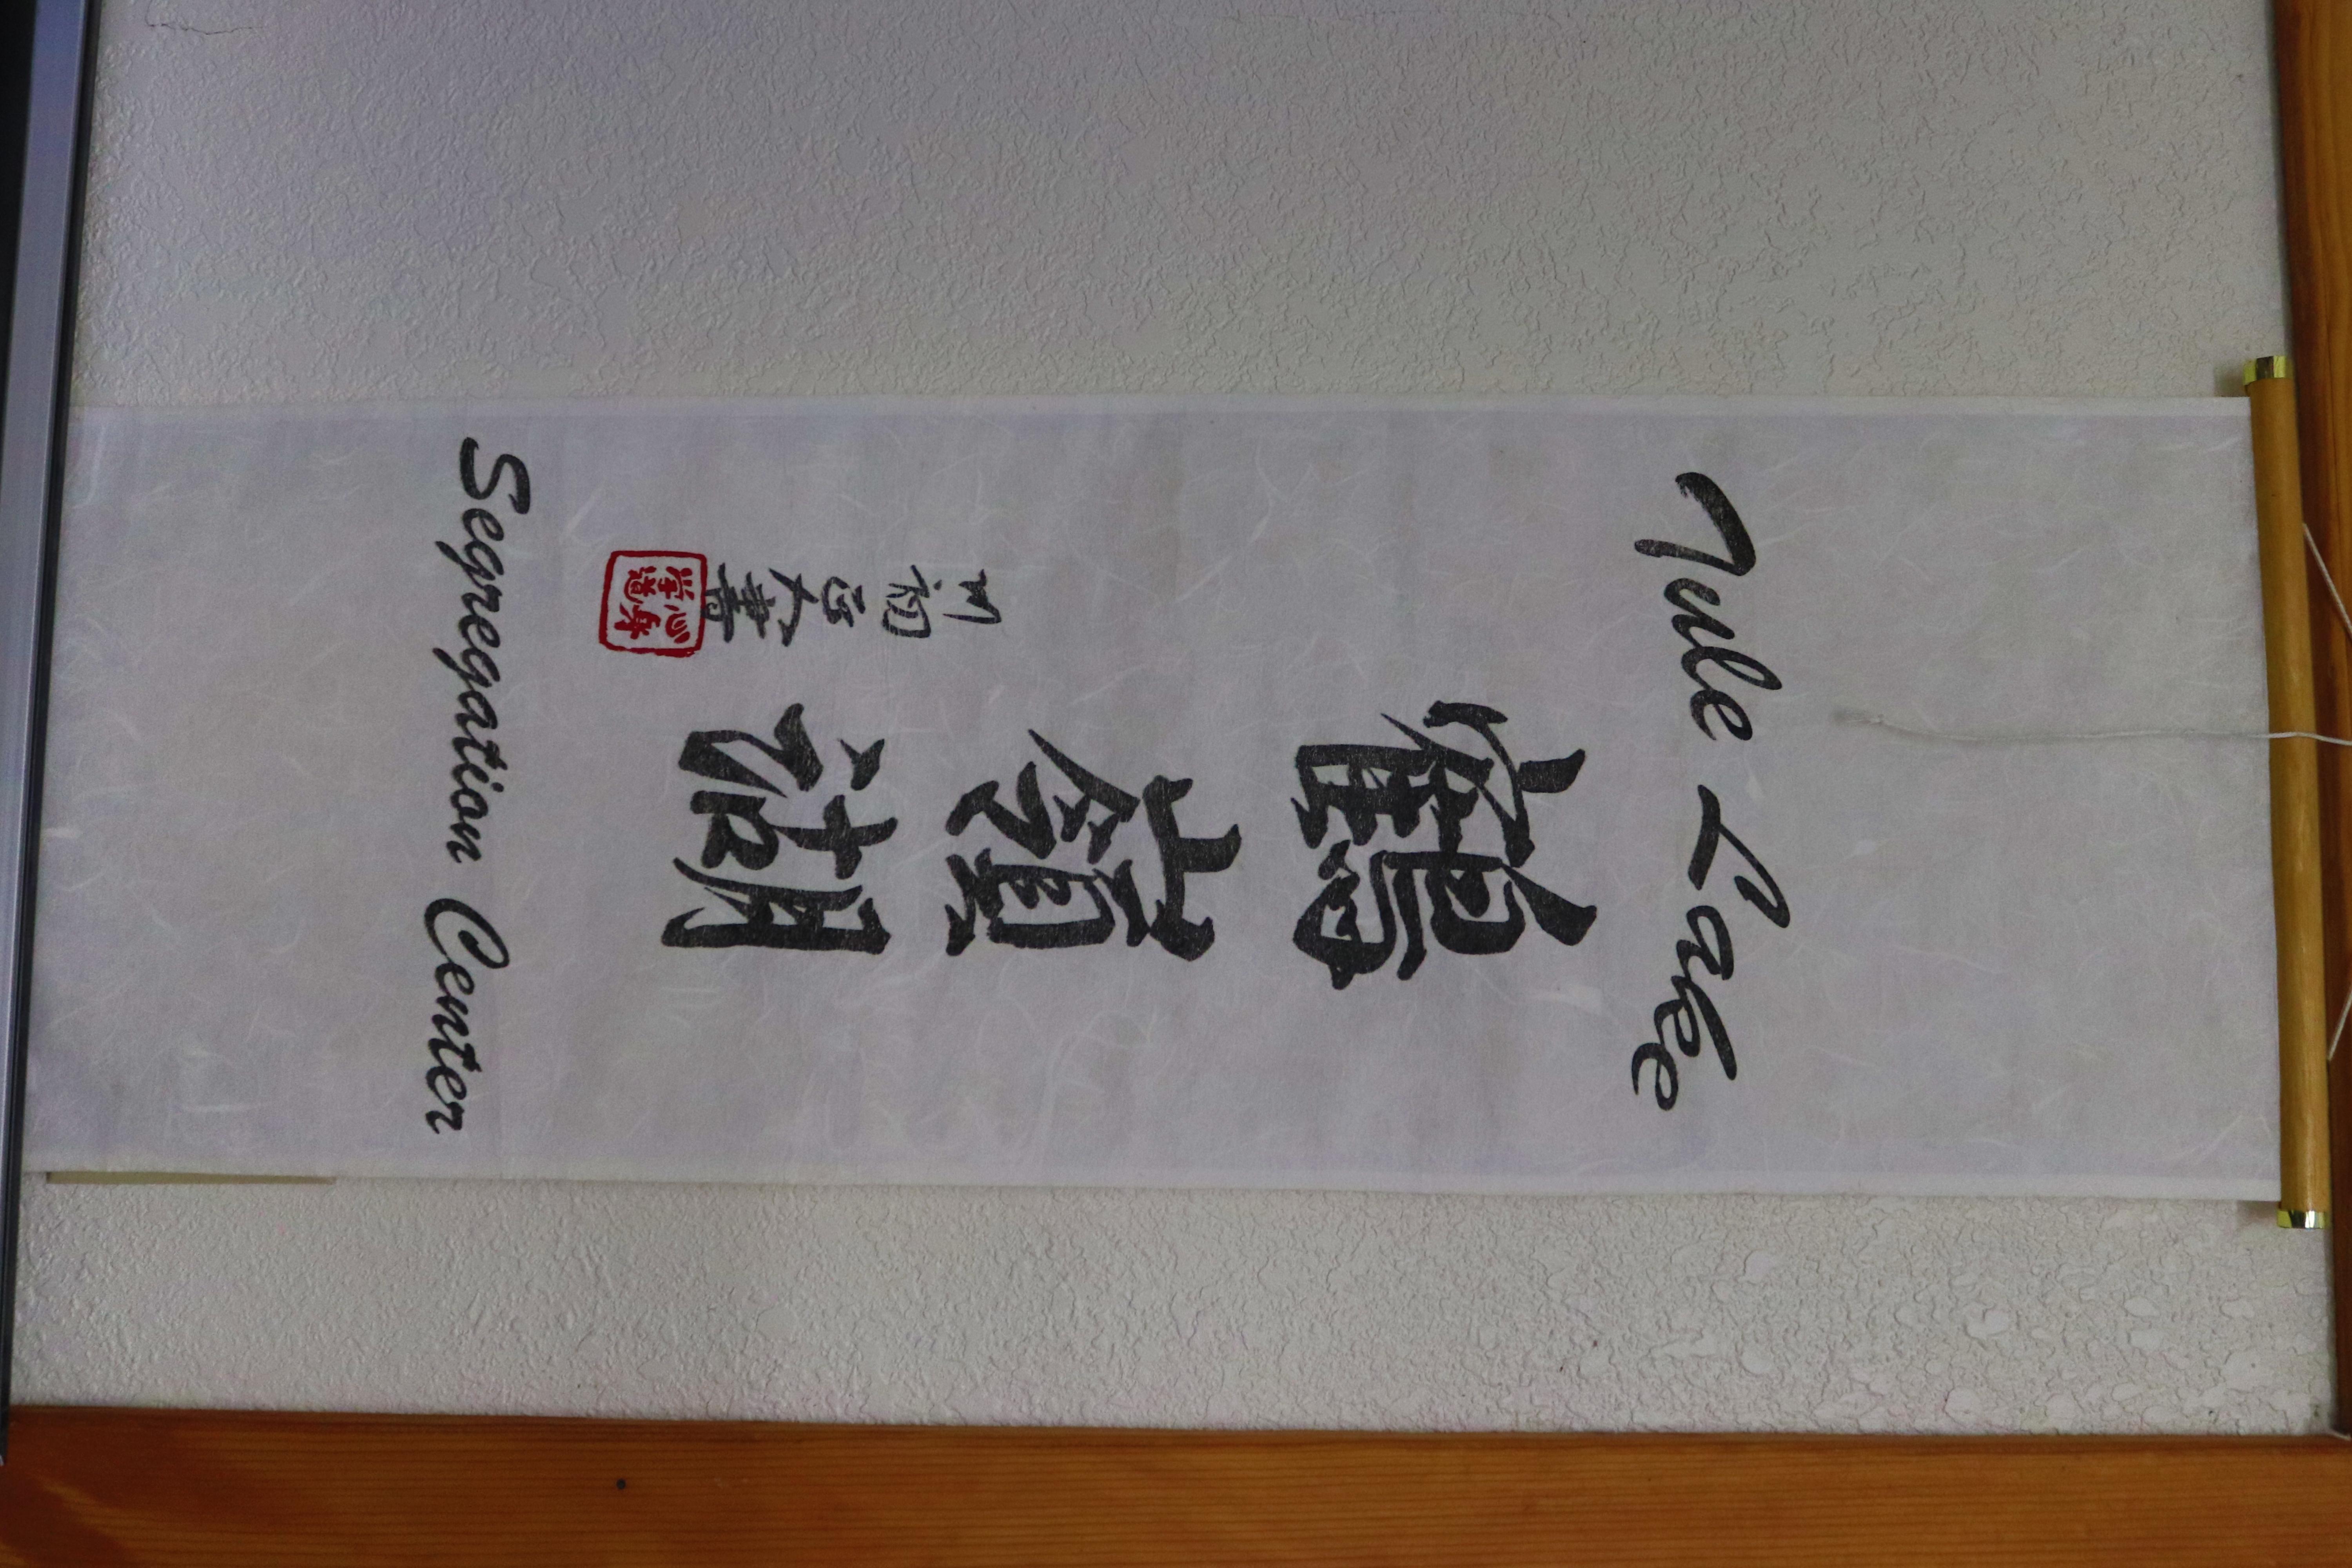 Tule Lake
鶴
嶺
湖
Segregation Center